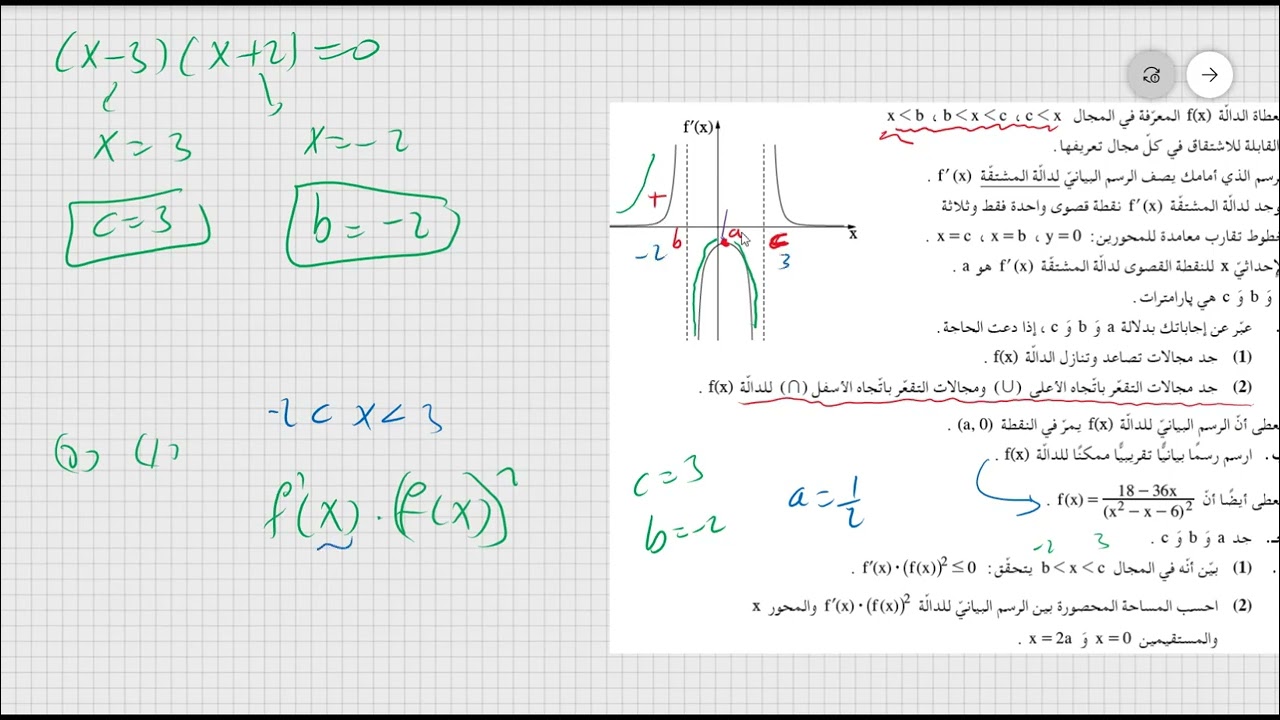 (x-3)(x+2)=0
x=3 x=-2
c=3 b=-2
-2<x<3
(1)
f'(x).(f(x))²
عطاة الدالّة f(x) المعرّفة في المجال x<b ، b<x<c ، c<x
القابلة للاشتقاق في كلّ مجال تعريفها.
رسم الذي أمامك يصف الرسم البيانيّ لدالّة المشتقّة f'(x) .
وجد لدالّة المشتقّة f'(x) نقطة قصوى واحدة فقط وثلاثة
خطوط تقارب معامدة للمحورين: x=c ، x=b ، y=0 .
لإحداثيّ x للنقطة القصوى لدالّة المشتقّة f'(x) هو a .
وَ b وَ c هي پارامترات.
عبّر عن إجاباتك بدلالة a وَ b وَ c ، إذا دعت الحاجة.
(1) جد مجالات تصاعد وتنازل الدالّة f(x) .
(2) جد مجالات التقعّر باتّجاه الأعلى (∪) ومجالات التقعّر باتّجاه الأسفل (∩) للدالّة f(x) .
عطى أنّ الرسم البيانيّ للدالّة f(x) يمرّ في النقطة (a, 0) .
ب. ارسم رسمًا بيانيًّا تقريبيًّا ممكنًا للدالّة f(x) .
عطى أيضًا أنّ f(x) = (18 – 36x)/(x² – x – 6)² .
جـ. جد a وَ b وَ c .
(1) بيّن أنّه في المجال b<x<c يتحقّق: f'(x)·(f(x))² ≤ 0 .
(2) احسب المساحة المحصورة بين الرسم البيانيّ للدالّة f'(x)·(f(x))² والمحور x
والمستقيمين x=0 وَ x=2a .
f'(x)
x
+
b a c
-2 3
c=3
b=-2
a=1/2
-2 3